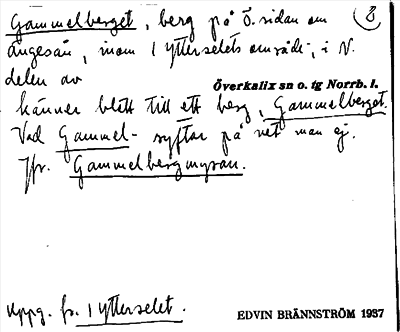 Gammelberget, berg på ö. sidan om 8
Ängesån, inom 1 ytterselets område, i N.
delen av
Överkalix sn o. tg Norrb. l.
känner blott till ett berg, Gammelberget.
Vad Gammel- syftar på vet man ej.
Jfr. Gammelbergmyran.
uppg. fr. 1 ytterselet.
EDVIN BRÄNNSTRÖM 1937